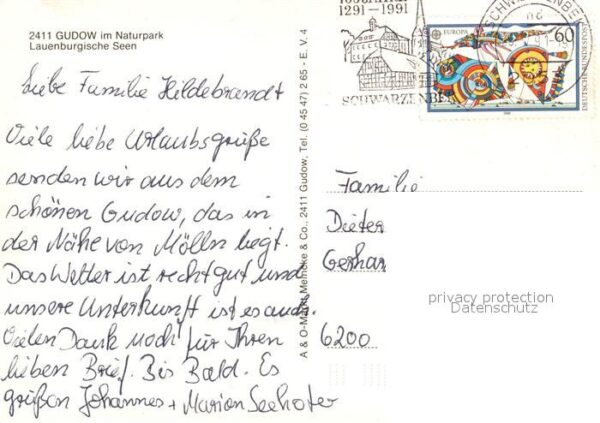 2411 GUDOW im Naturpark
Lauenburgische Seen
Liebe Familie Hildebrandt
Viele liebe Urlaubsgrüße
senden wir aus dem
schönen Gudow, das in
der Nähe von Mölln liegt.
Das Wetter ist recht gut und
unsere Unterkunft ist es auch.
Vielen Dank noch für Ihren
lieben Brief. Bis Bald. Es
grüßen Johannes + Marion Seehofer
A & O-Markt Meincke & Co., 2411 Gudow, Tel. (0 45 47) 2 65 - E. V. 4
1291-1991
SCHWARZENBEK
SCHWARZENBEK
EUROPA
60
DEUTSCHE BUNDESPOST
Familie
Dieter
Gerhar
6200
privacy protection
Datenschutz